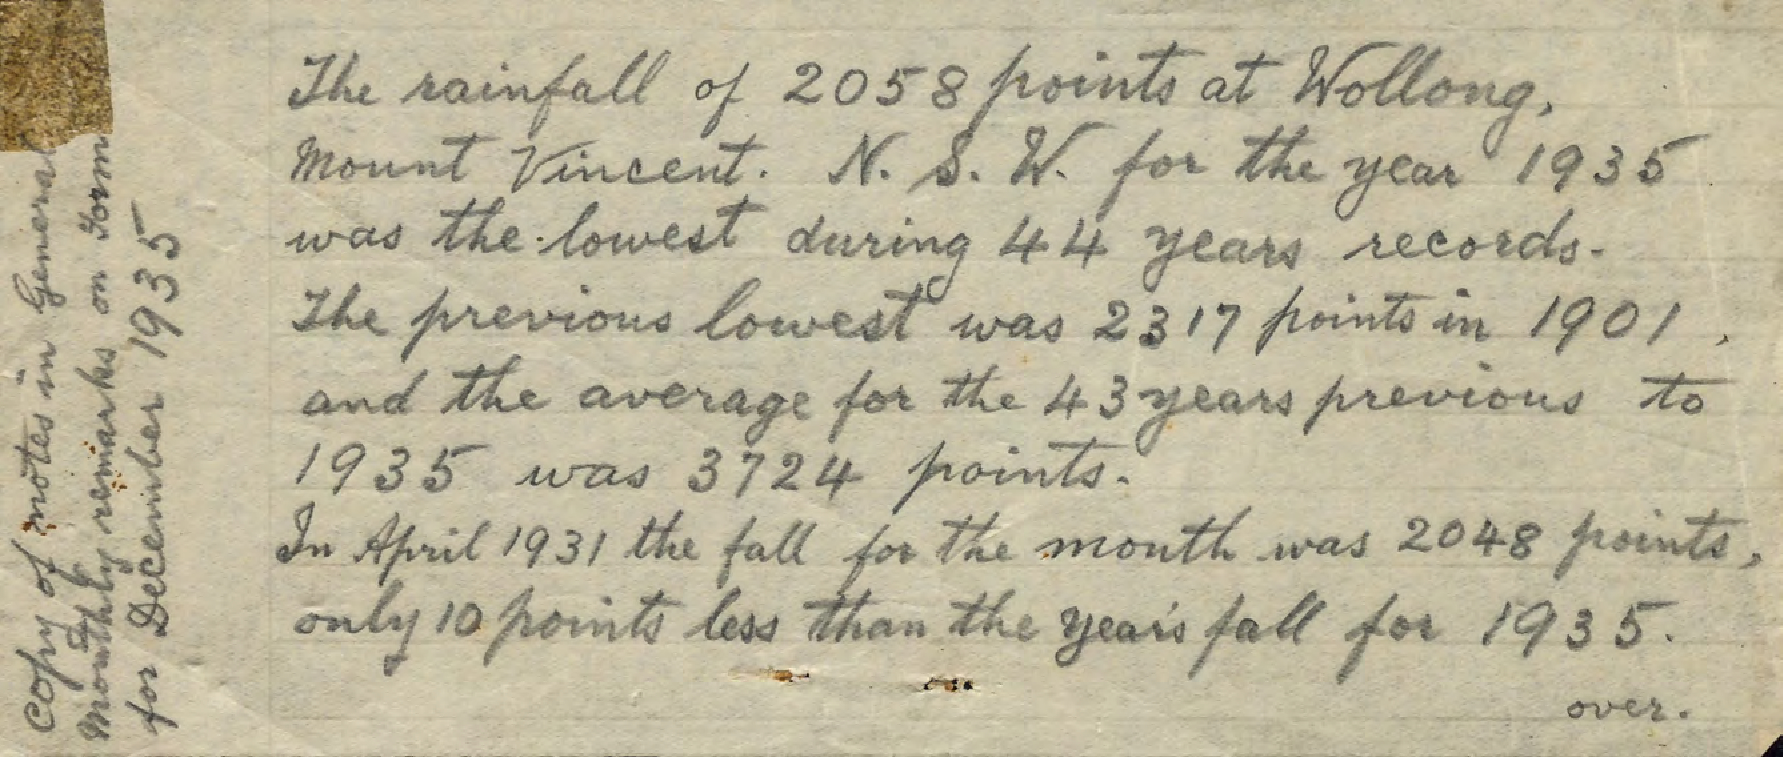 The rainfall of 2058 points at Wollong,
Mount Vincent. N. S. W. for the year 1935
was the lowest during 44 years records.
The previous lowest was 2317 points in 1901,
and the average for the 43 years previous to
1935 was 3724 points.
In April 1931 the fall for the month was 2048 points,
only 10 points less than the year's fall for 1935.
over.
Copy of notes in General
Monthly remarks on Form
for December 1935